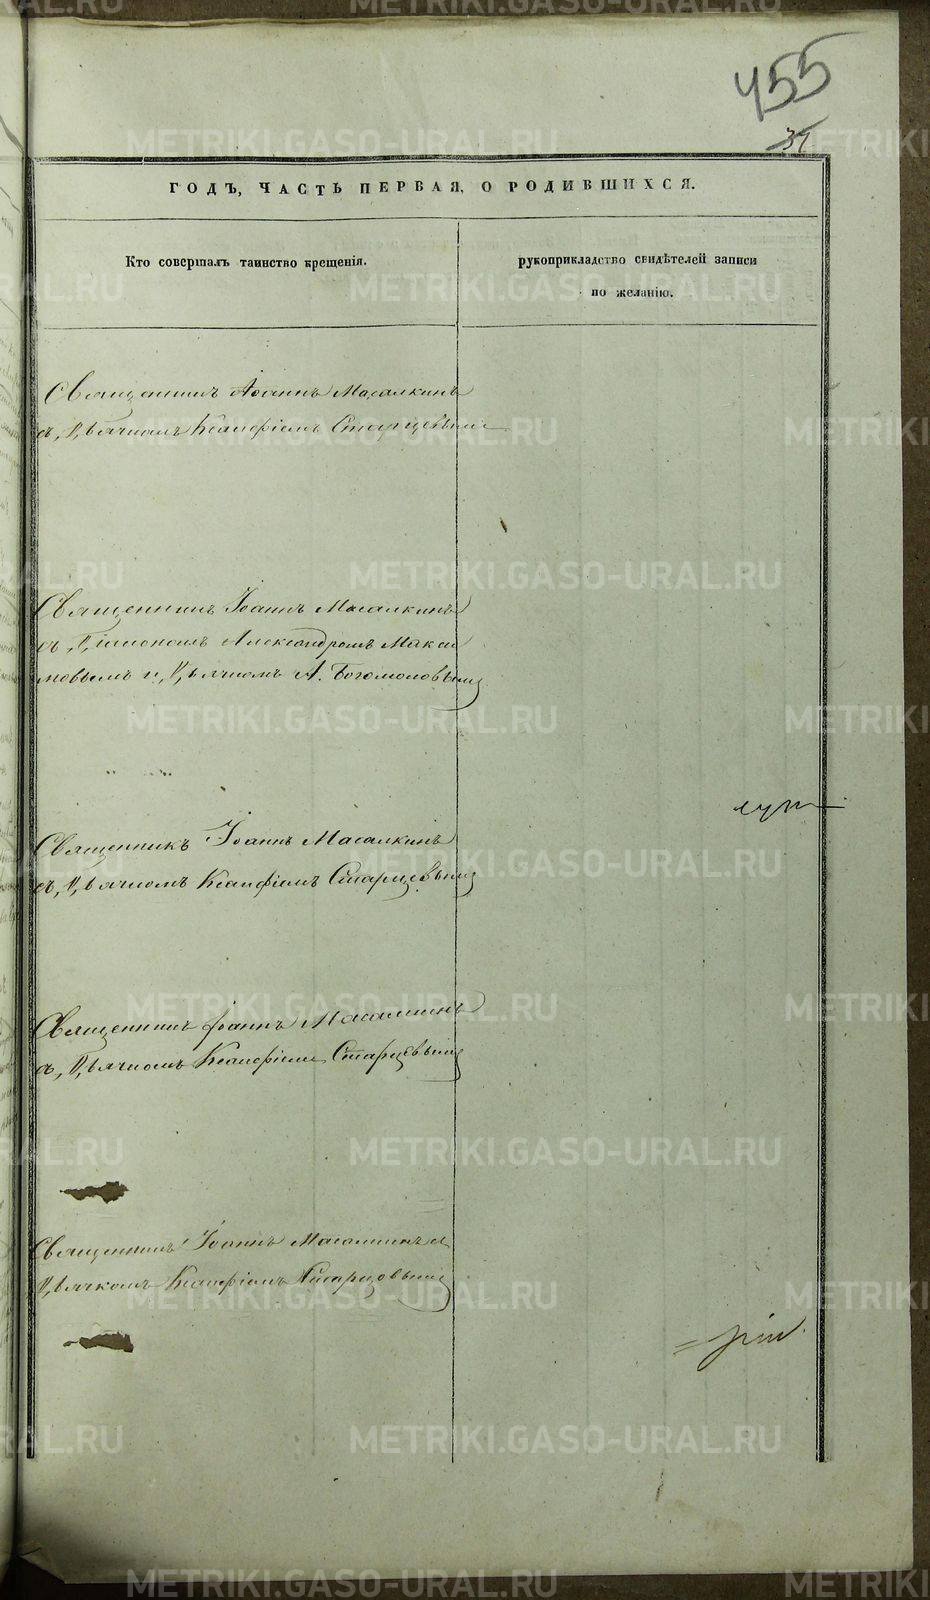 455
37
ГОДЪ, ЧАСТЬ ПЕРВАЯ, О РОДИВШИХСЯ.
Кто совершалъ таинство крещенія.
рукоприкладство свидѣтелей записи
по желанію.
Священникъ Іоаннъ Масалкинъ
съ Дьячкомъ Ксанфіемъ Старцевымъ
Священникъ Іоаннъ Масалкинъ
съ Діакономъ Александромъ Макси
мовымъ и Дьячкомъ А. Богомоловымъ
Священникъ Іоаннъ Масалкинъ
съ Дьячкомъ Ксанфіемъ Старцевымъ
Священникъ Іоаннъ Масалкинъ
съ Дьячкомъ Ксанфіемъ Старцевымъ
Священникъ Іоаннъ Масалкинъ съ
Дьячкомъ Ксанфіемъ Старцовымъ
METRIKI.GASO-URAL.RU